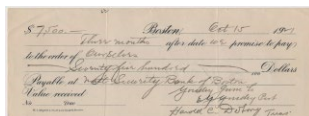 $7500— Boston, Oct 15 190
Three months after date we promise to pay
to the order of Ourselves
Seventy five hundred Dollars
Payable at Nat. Security Bank of Boston
Value received
No Due
Harold C. Treas